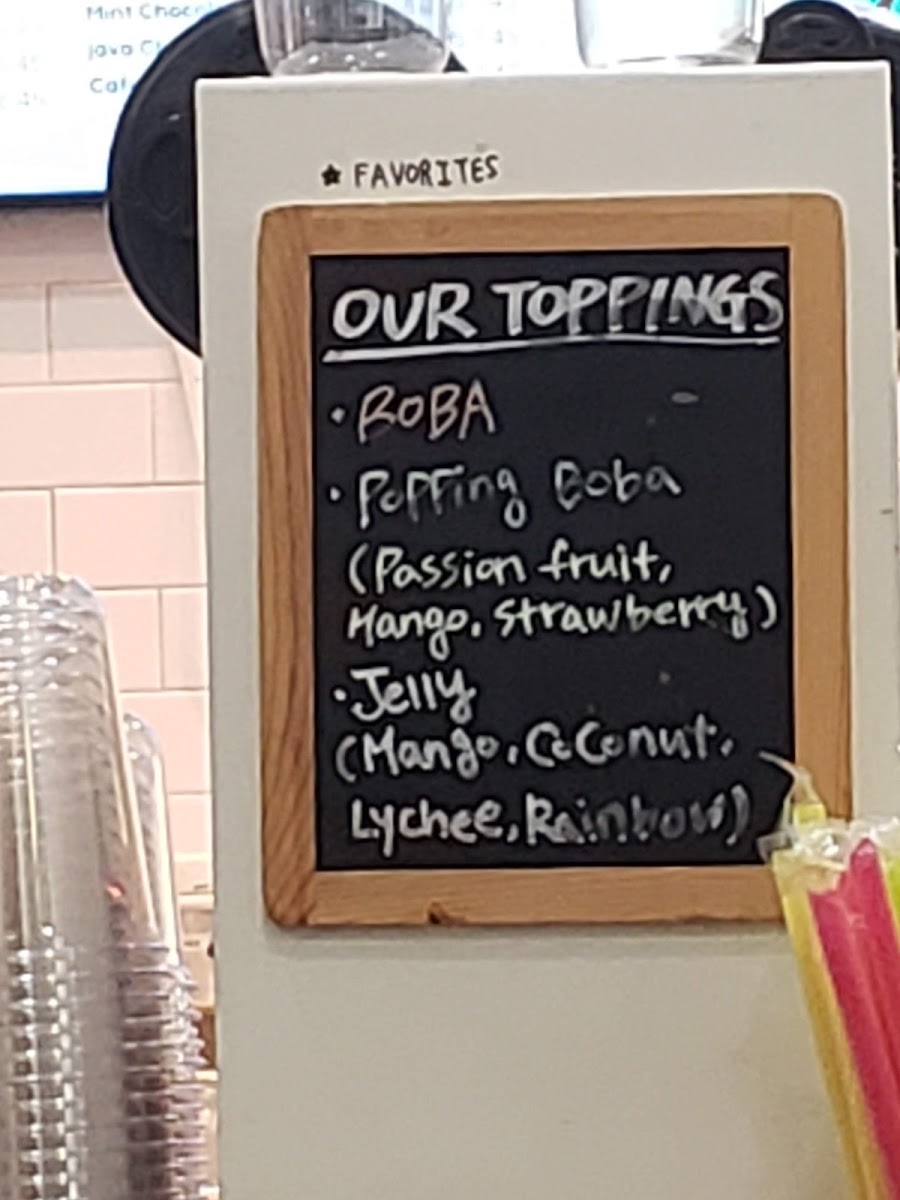 Mint
Java
★ FAVORITES
OUR TOPPINGS
• BOBA
• Popping Boba
(Passion fruit,
Mango, Strawberry)
• Jelly
(Mango, Coconut,
Lychee, Rainbow)